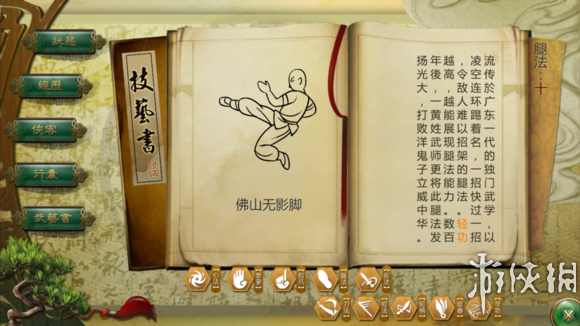 狀態
經歷
俠客
行囊
技藝書
技藝書
佛山无影脚
腿法：十
流传於广东一代的独门武学，以
凌空连环踢着名，一招快过一招
，令敌人难以招架的腿法。轻功
越高，越能展现腿法能力。数百
年後，一黄姓武师更将此腿法发
扬光大，打败洋鬼子立威中华。
游侠网